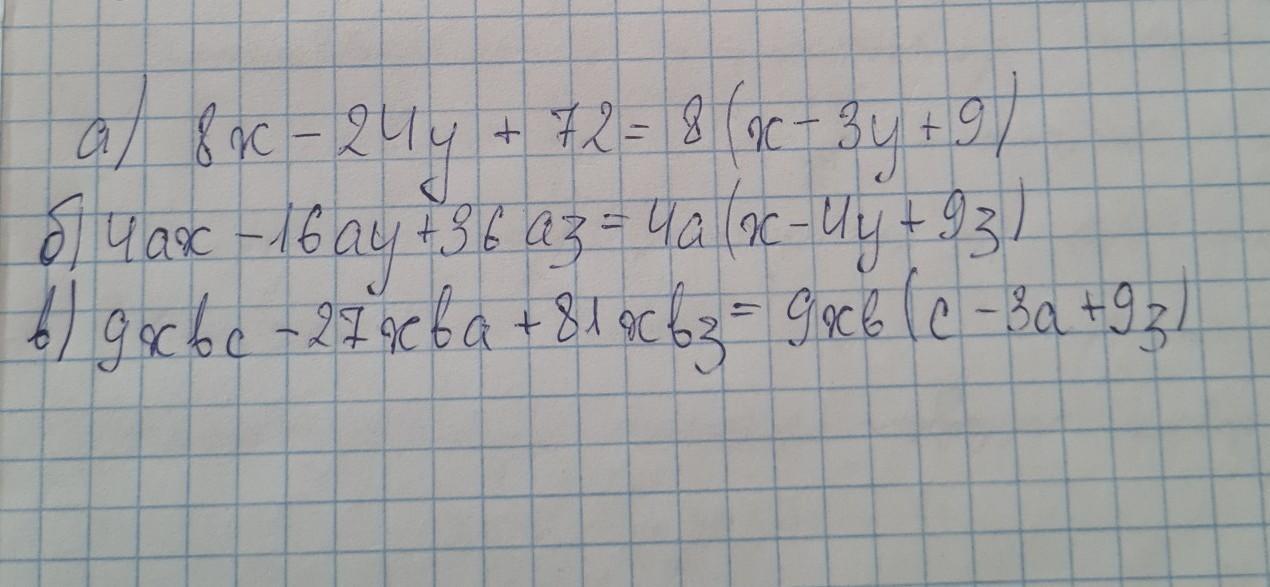 а) 8x - 24y + 72 = 8(x - 3y + 9)
б) 4ax - 16ay + 36az = 4a(x - 4y + 9z)
в) 9xbc - 27xba + 81xbz = 9xb(c - 3a + 9z)